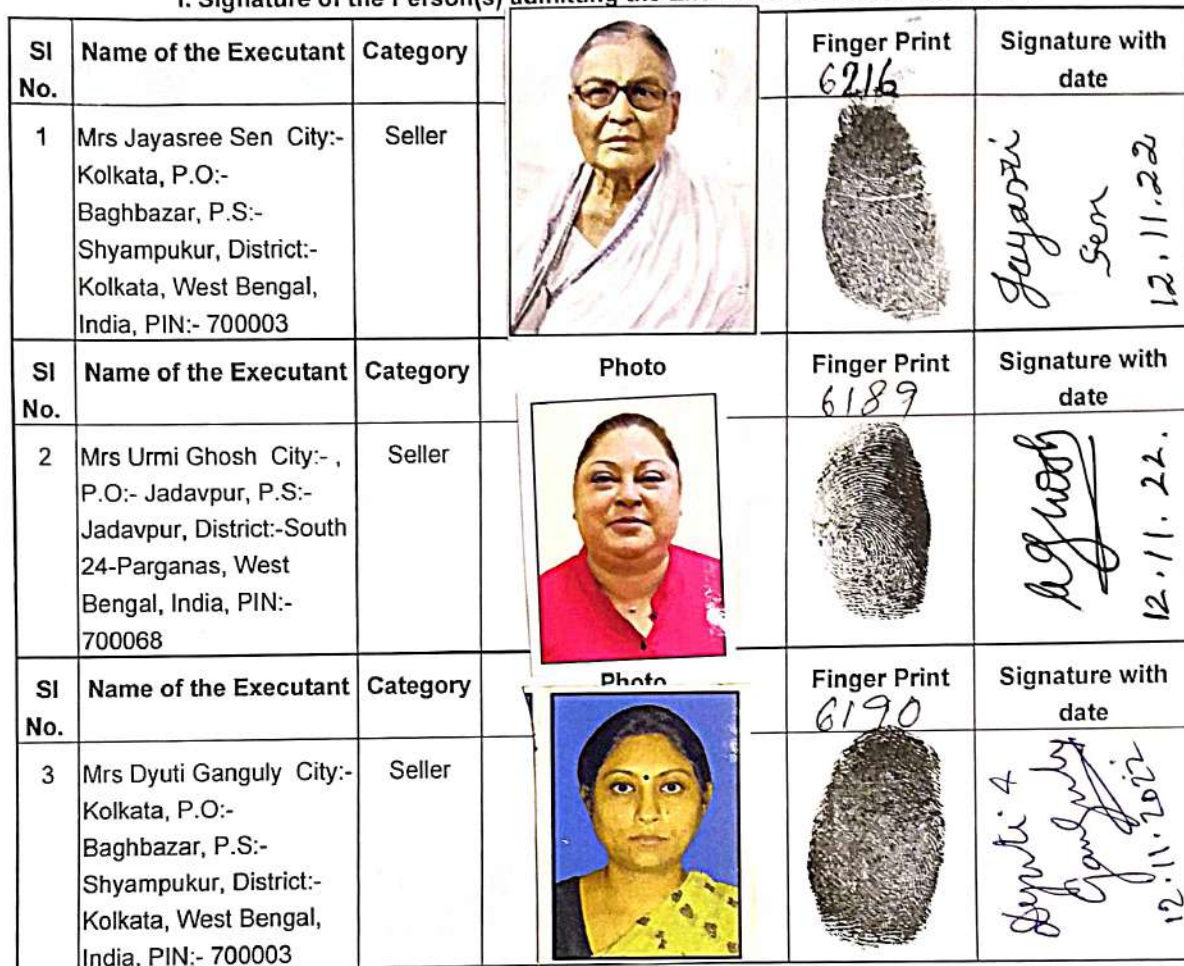 I. Signature of the Person(s) admitting the
Sl No. Name of the Executant Category Finger Print Signature with date
6216
1 Mrs Jayasree Sen City:- Seller
Kolkata, P.O:-
Baghbazar, P.S:-
Shyampukur, District:-
Kolkata, West Bengal,
India, PIN:- 700003
Jayasri
Sen
12.11.22
Sl No. Name of the Executant Category Photo Finger Print Signature with date
6189
2 Mrs Urmi Ghosh City:- , Seller
P.O:- Jadavpur, P.S:-
Jadavpur, District:-South
24-Parganas, West
Bengal, India, PIN:-
700068
UGhosh
12.11.22.
Sl No. Name of the Executant Category Photo Finger Print Signature with date
6190
3 Mrs Dyuti Ganguly City:- Seller
Kolkata, P.O:-
Baghbazar, P.S:-
Shyampukur, District:-
Kolkata, West Bengal,
India, PIN:- 700003
Dyuti
Ganguly
12.11.2022